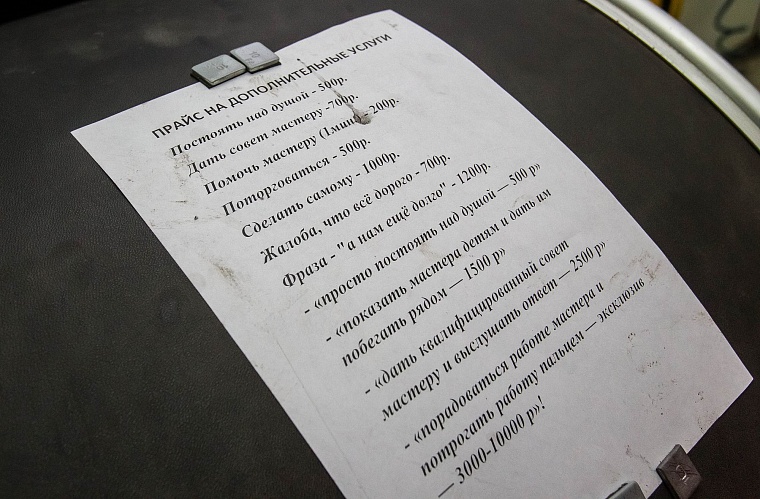 ПРАЙС НА ДОПОЛНИТЕЛЬНЫЕ УСЛУГИ
Постоять над душой - 500р.
Дать совет мастеру -700р.
Помочь мастеру (1мин) - 200р.
Поторговаться - 500р.
Сделать самому - 1000р.
Жалоба, что всё дорого - 700р.
Фраза - "а нам ещё долго" - 1200р.
- «просто постоять над душой — 500 р»
- «показать мастера детям и дать им
побегать рядом — 1500 р»
- «дать квалифицированный совет
мастеру и выслушать ответ — 2500 р»
- «порадоваться работе мастера и
потрогать работу пальцем — эксклюзив
— 3000-10000 р»!